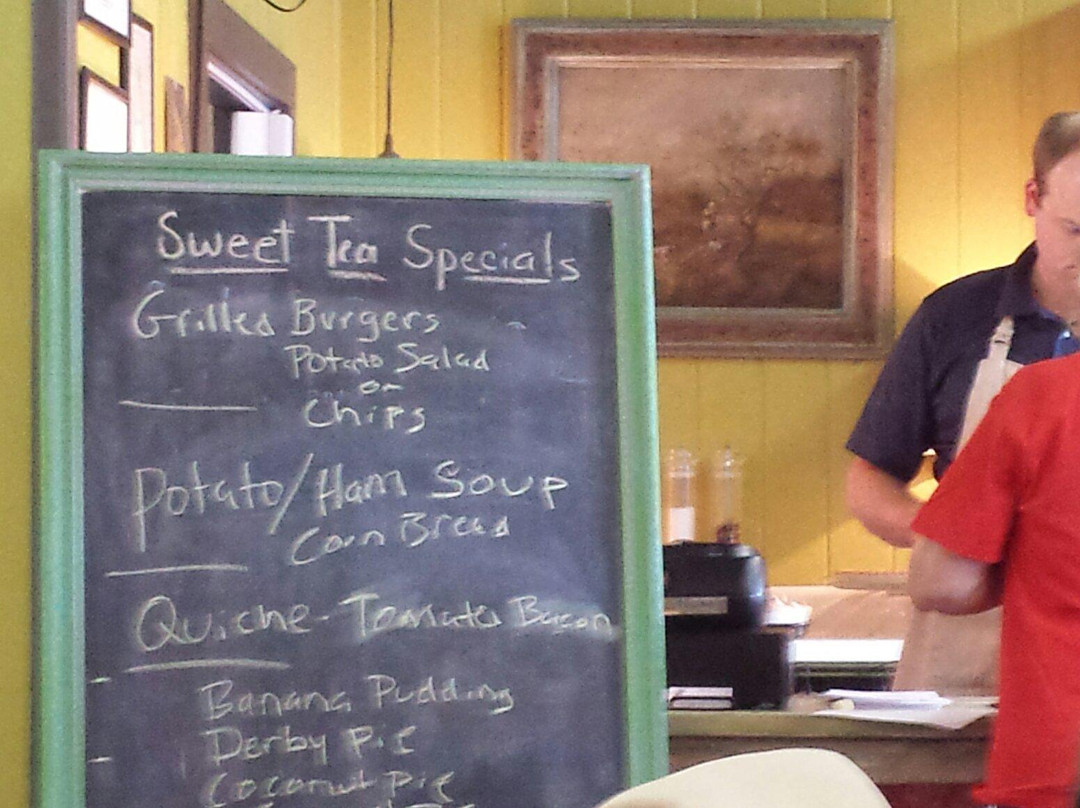 Sweet Tea Specials
Grilled Burgers
Potato Salad
or
Chips
Potato/Ham Soup
Corn Bread
Quiche - Tomato Bacon
Banana Pudding
Derby Pie
Coconut Pie